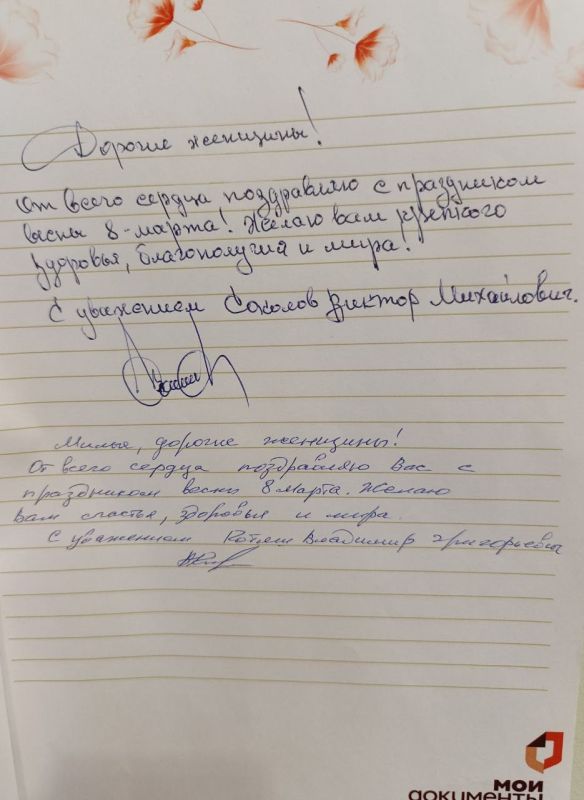 Дорогие женщины!
От всего сердца поздравляю с праздником
весны 8-марта! Желаю вам крепкого
здоровья, благополучия и мира!
С уважением Соколов Виктор Михайлович.
Милые, дорогие женщины!
От всего сердца поздравляю Вас с
праздником весны 8 Марта. Желаю
Вам счастья, здоровья и мира.
С уважением Владимир Григорьевич
МОИ
ДОКУМЕНТЫ